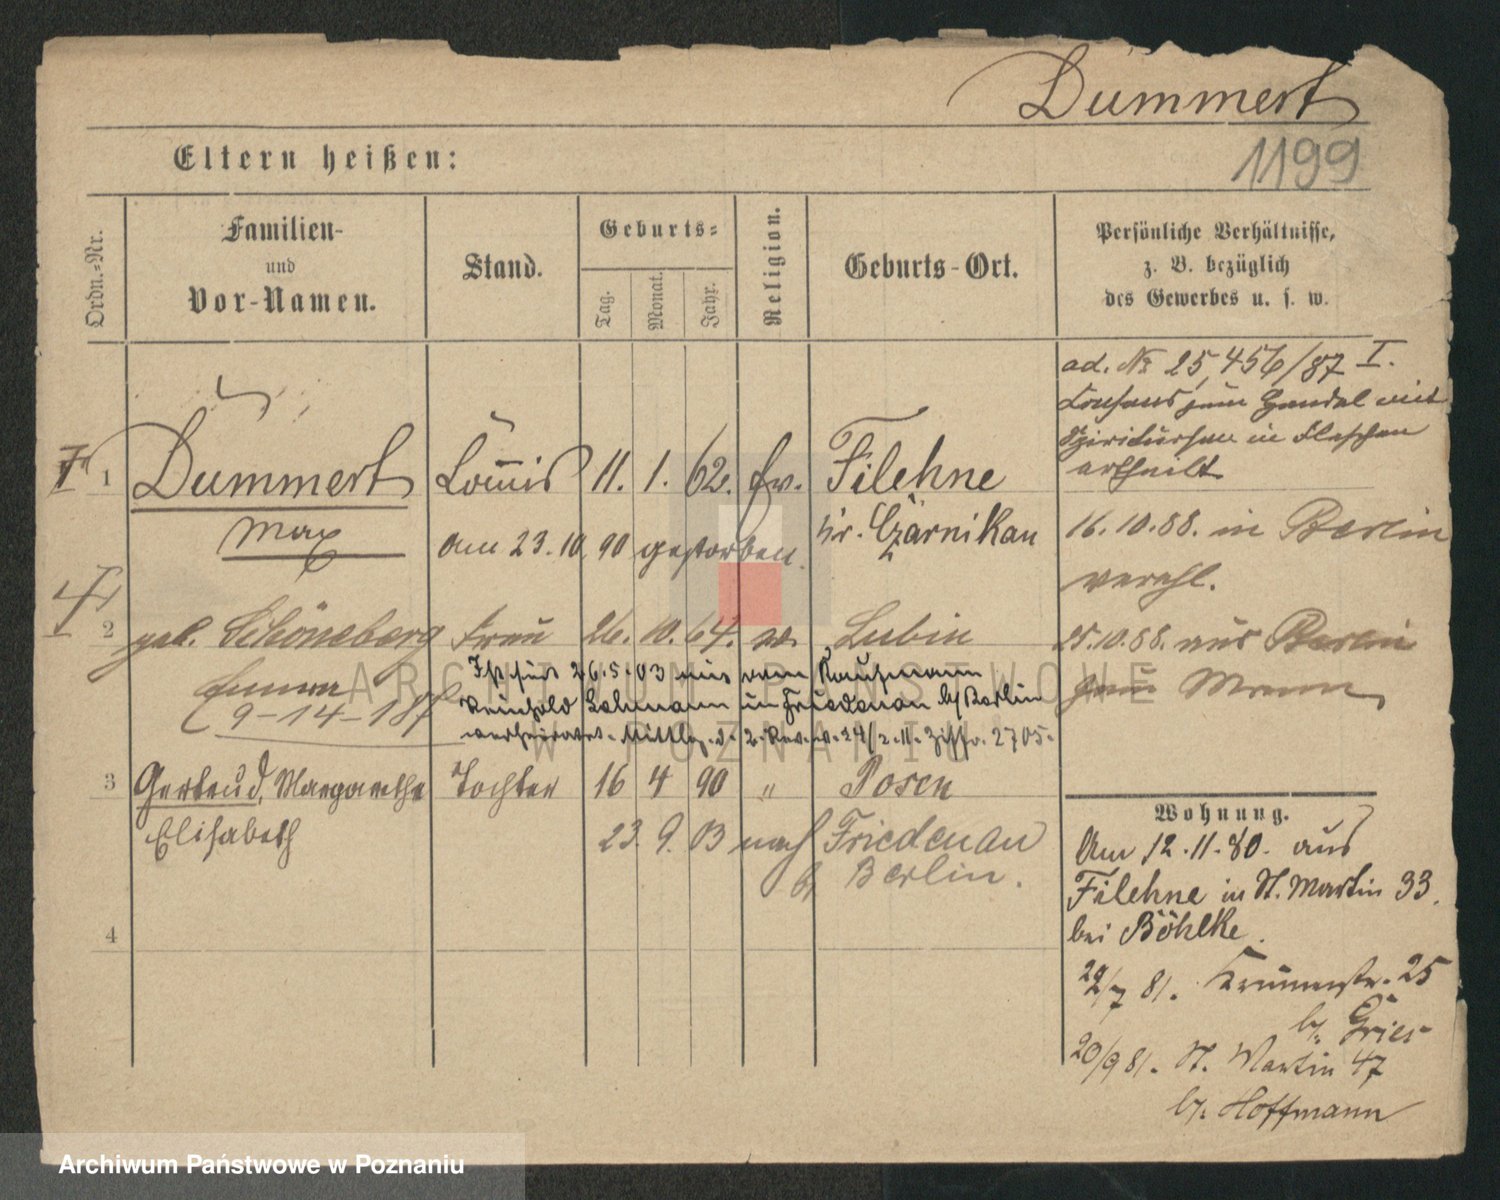 Dummert
1199
Eltern heißen:
Ordn.-Nr.
Familien-
und
Vor-Namen.
Stand.
Geburts-
Tag.
Monat.
Jahr.
Religion.
Geburts-Ort.
Persönliche Verhältnisse,
z. B. bezüglich
des Gewerbes u. s. w.
1
Dummert
Max
Commis
11. 1. 62. ev.
Filehne
Kr. Czarnikau
am 23. 10. 90 gestorben
ad. No 25,456/87 I.
Consens zum Handel mit
Spirituosen in Flaschen
ertheilt
16. 10. 88. in Berlin
verehl.
2
geb. Schöneberg
Emma
9-14-187
Frau
26. 10. 64. ev.
Lubin
25. 10. 88. aus Berlin
zum Mann
Ist seit 26.5.03 mit dem Kaufmann
Reinhold Lehmann in Friedenau b/Berlin
verheiratet. Mittlg. d. 2. Rev. v. 24/2. 11. Ziffr. 2705.
3
Gertrud, Margarethe
Elisabeth
Tochter
16 4 90 "
Posen
23. 9. 03 nach Friedenau
b/ Berlin.
4
Wohnung.
Am 12. 11. 80. aus
Filehne in St. Martin 33.
bei Böhlke.
29/7 81. 25
b/. Gries
20/9 81. St. Martin 47
b/. Hoffmann
ARCHIWUM PAŃSTWOWE
W POZNANIU
Archiwum Państwowe w Poznaniu